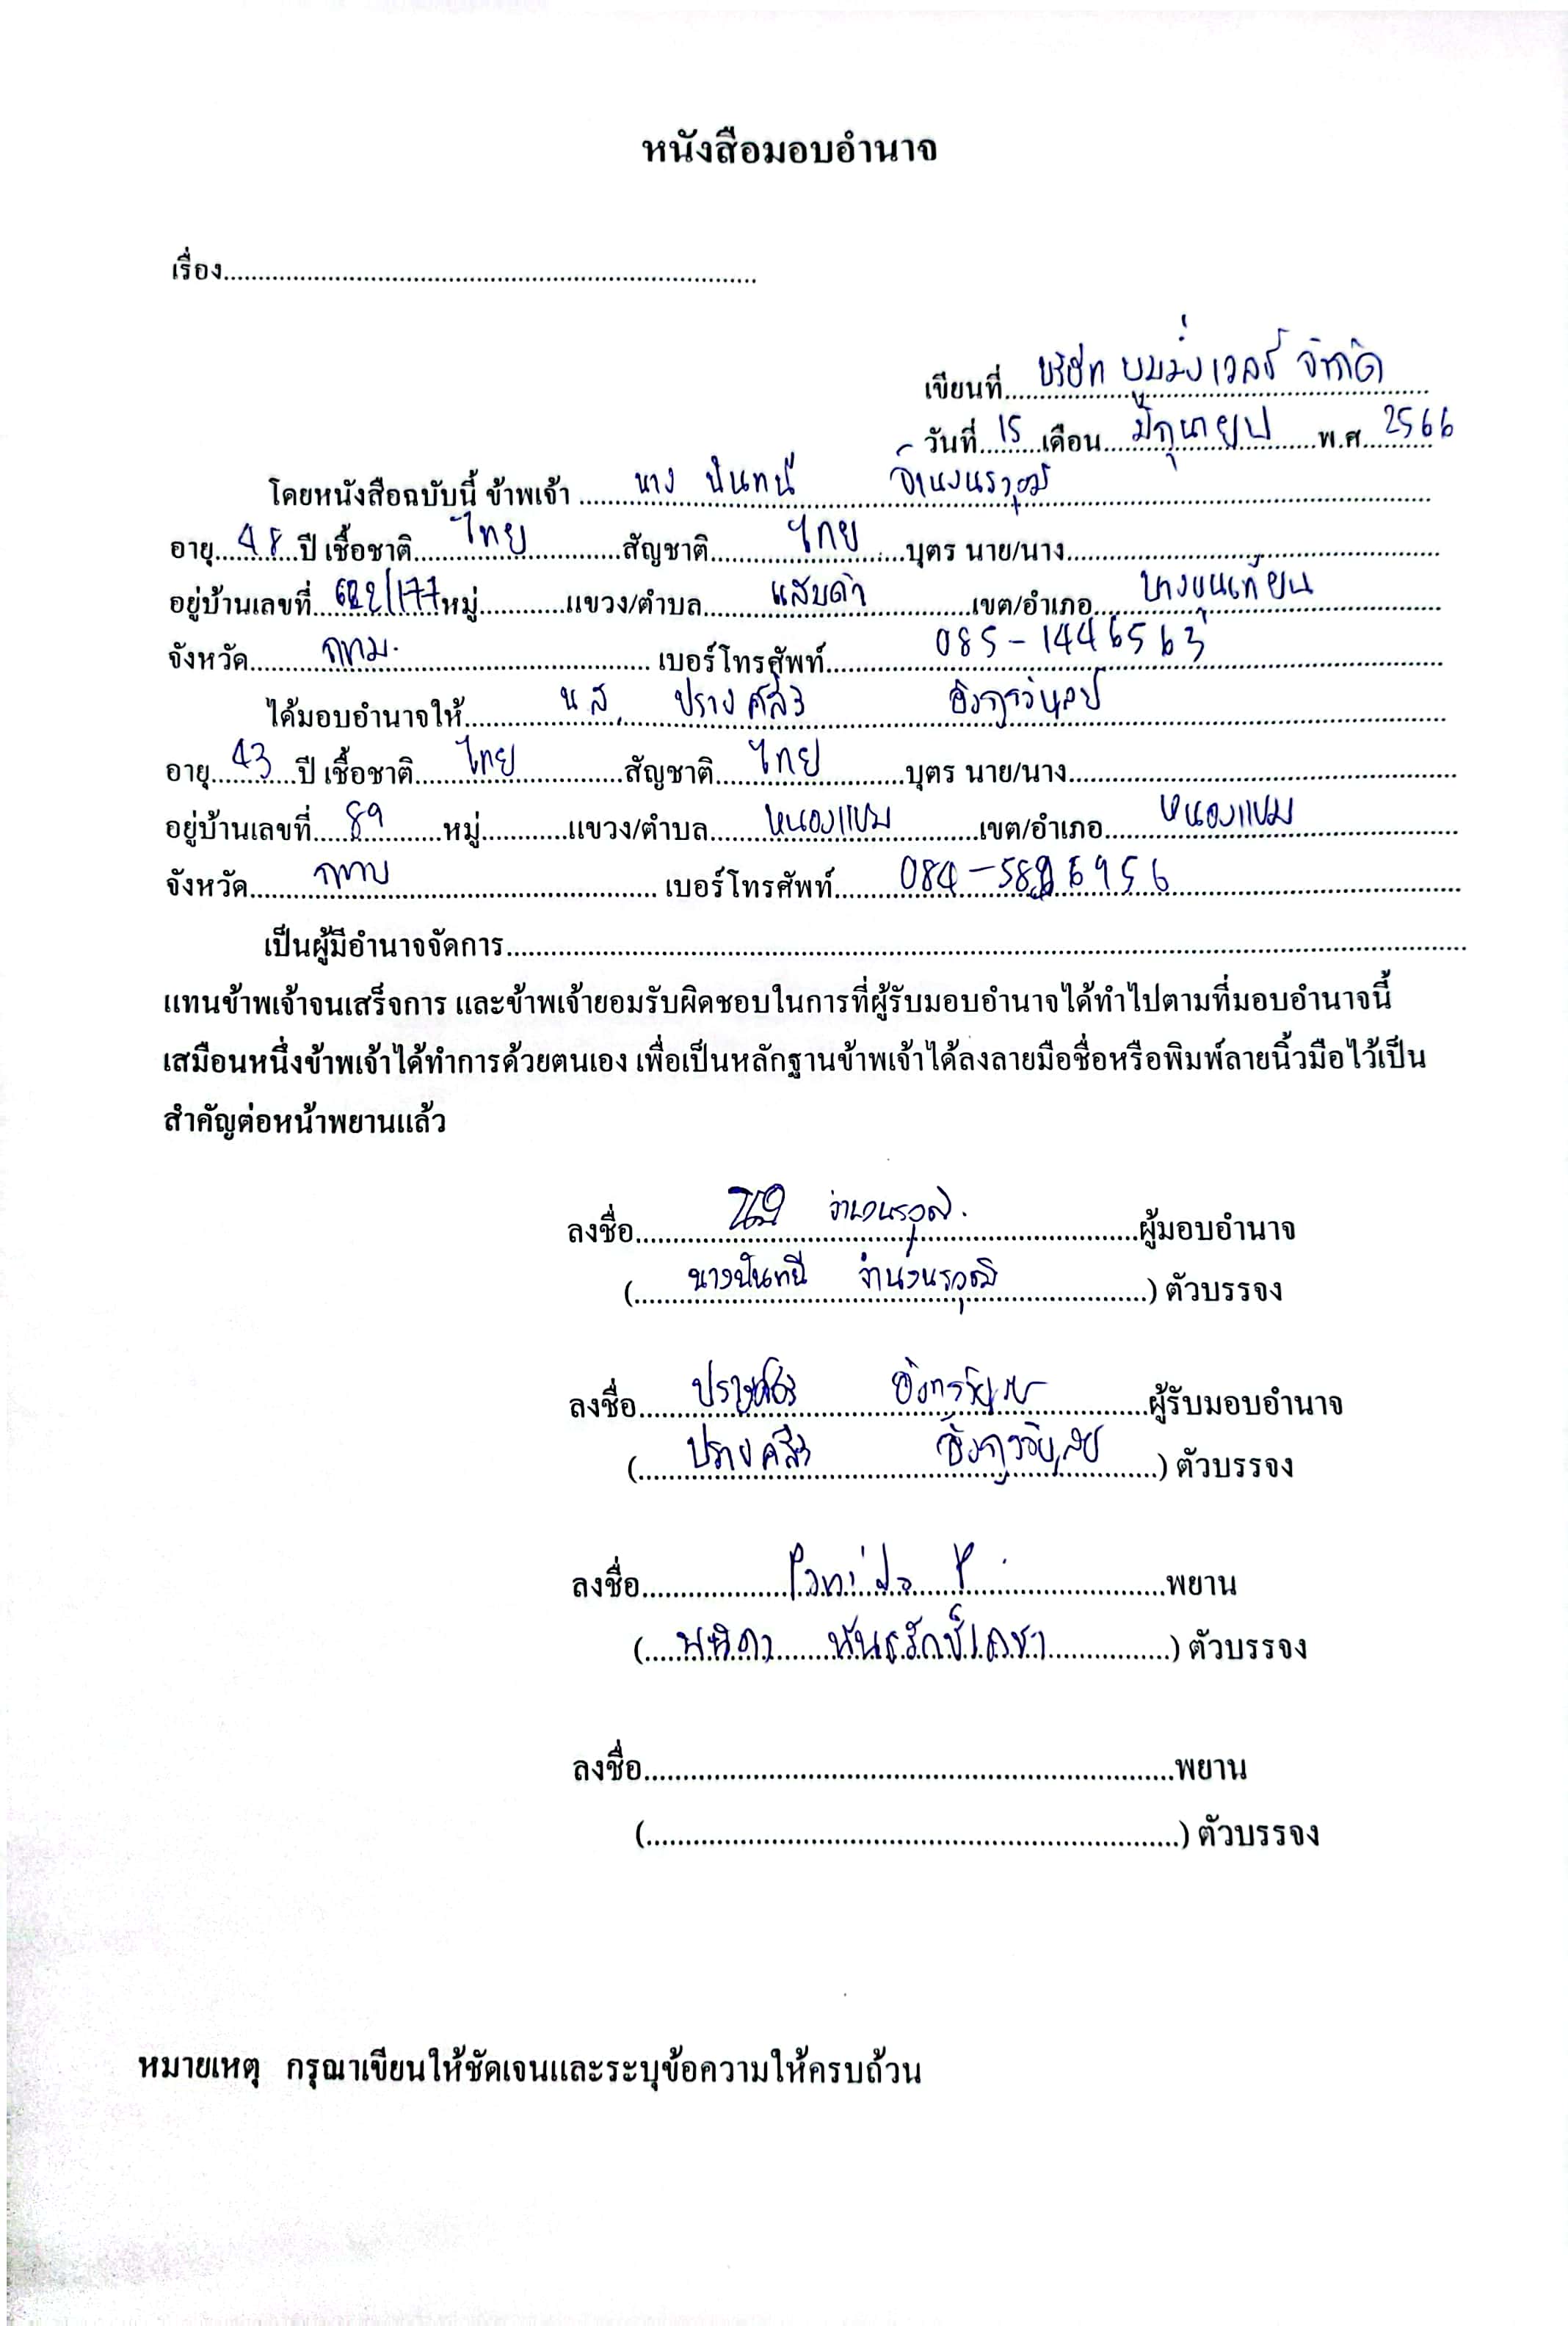 หนังสือมอบอำนาจ
เรื่อง........................................
เขียนที่ บริษัท บูมมิ่ง เวลธ์ จำกัด
วันที่ 15 เดือน มิถุนายน พ.ศ. 2566
โดยหนังสือฉบับนี้ ข้าพเจ้า นาง นันทนี จำนงนรวุฒิ
อายุ 48 ปี เชื้อชาติ ไทย สัญชาติ ไทย บุตร นาย/นาง........................................
อยู่บ้านเลขที่ 622/177 หมู่............แขวง/ตำบล แสมดำ เขต/อำเภอ บางขุนเทียน
จังหวัด กทม. เบอร์โทรศัพท์ 085-1446563
ได้มอบอำนาจให้ น.ส. ปรางค์สิริ
อายุ 43 ปี เชื้อชาติ ไทย สัญชาติ ไทย บุตร นาย/นาง........................................
อยู่บ้านเลขที่ 89 หมู่............แขวง/ตำบล หนองแขม เขต/อำเภอ หนองแขม
จังหวัด กทม เบอร์โทรศัพท์
เป็นผู้มีอำนาจจัดการ........................................
แทนข้าพเจ้าจนเสร็จการ และข้าพเจ้ายอมรับผิดชอบในการที่ผู้รับมอบอำนาจได้ทำไปตามที่มอบอำนาจนี้
เสมือนหนึ่งข้าพเจ้าได้ทำการด้วยตนเอง เพื่อเป็นหลักฐานข้าพเจ้าได้ลงลายมือชื่อหรือพิมพ์ลายนิ้วมือไว้เป็น
สำคัญต่อหน้าพยานแล้ว
ลงชื่อ จำนงนรวุฒิ ผู้มอบอำนาจ
( นางนันทนี จำนงนรวุฒิ ) ตัวบรรจง
ลงชื่อ ปรางค์สิริ ผู้รับมอบอำนาจ
( ปรางค์สิริ ) ตัวบรรจง
ลงชื่อ........................................พยาน
( พนิดา พันธรักษ์เดชา ) ตัวบรรจง
ลงชื่อ........................................พยาน
(........................................) ตัวบรรจง
หมายเหตุ กรุณาเขียนให้ชัดเจนและระบุข้อความให้ครบถ้วน